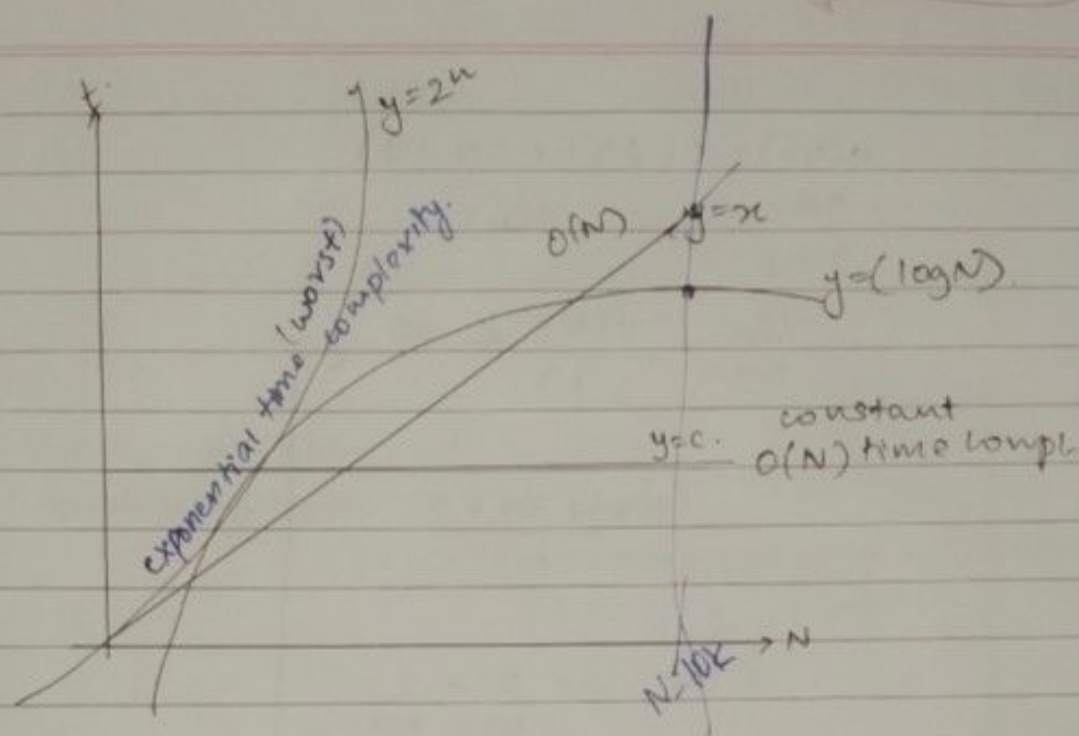 t
y=2ⁿ
exponential time (worst)
complexity.
O(N)
y=x
y=(logN)
y=c.
constant
O(N) time compl
N
N=10k